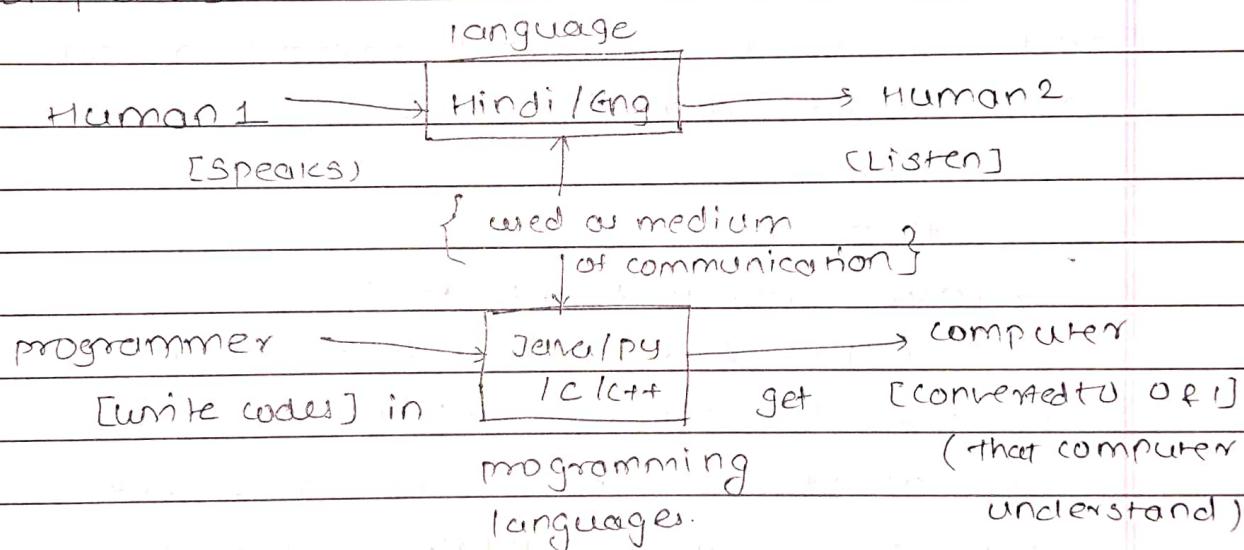 language
Human 1 Hindi / Eng Human 2
[Speaks) (Listen]
{ used as medium
of communication }
programmer Java/py computer
[write codes] in /C/C++ get [converted to 0 & 1]
programming (that computer
languages. understand)